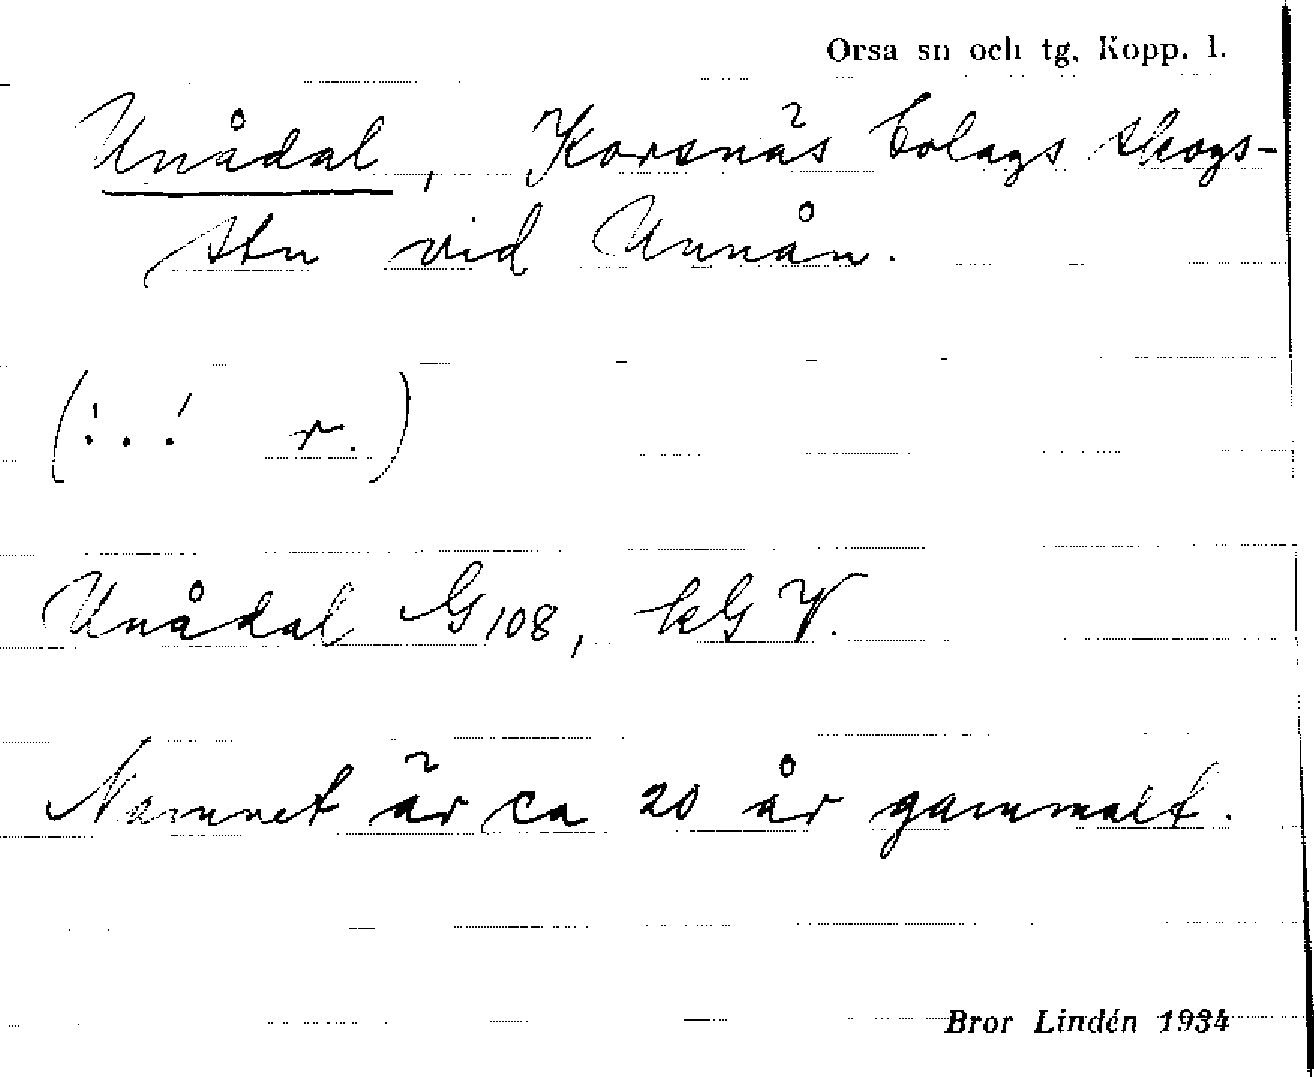 Orsa sn och tg. Kopp. l.
Unådal, Korsnäs bolags skogs-
stn vid Unnån.
(: . ! r.)
Unådal G 108, kG V.
Namnet är ca 20 år gammalt.
Bror Lindén 1934